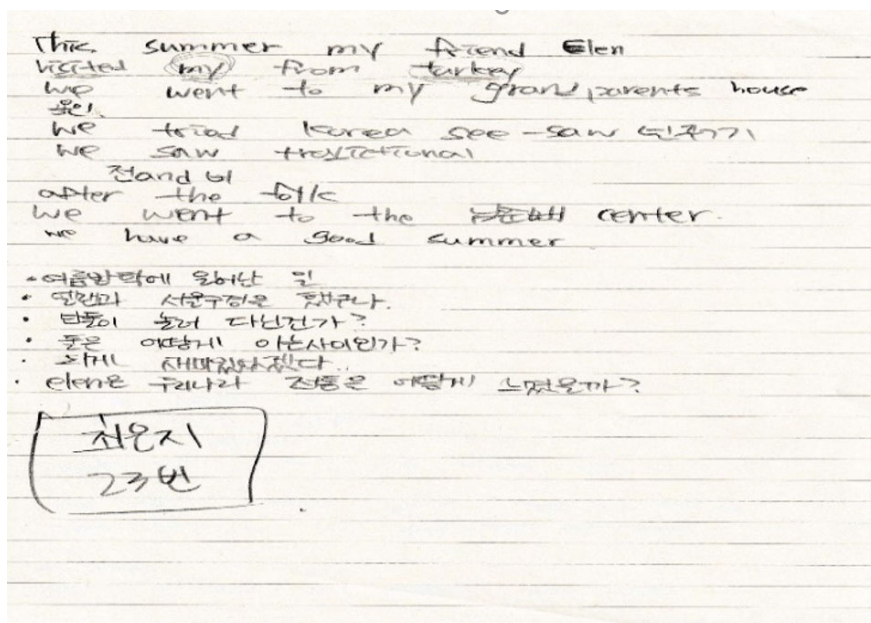 This summer my friend Elen
visited my from turkey
we went to my grandparents house
용인
we tried Korea see-saw 널뛰기
we saw traditional
전and 비
after the folk
we went to the center.
we have a good summer
• 여름방학에 일어난 일
• 엘렌과 서울구경은 했구나.
• 둘이 놀러 다닌건가?
• 둘은 어떻게 아는사이인가?
• 되게 재미있었겠다..
• elen은 우리나라 전통은 어떻게 느꼈을까?
최은지
23번